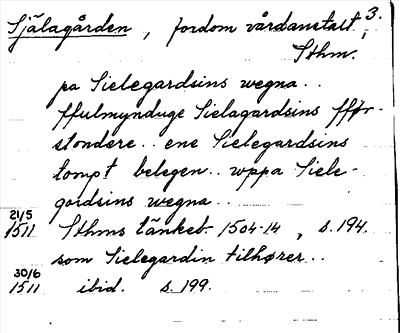 Själagården, fordom vårdanstalt, 3.
Sthm.
pa Sielegardsins wegna..
ffulmynduge Sielagardsins ffør-
stondere.. ene Sielegardsins
tompt belegen.. wppa Siele-
gardsins wegna..
21/5
1511 Sthms tänkeb. 1504-14, s. 194.
som Sielegardin tilhører..
30/6
1511 ibid. s. 199.